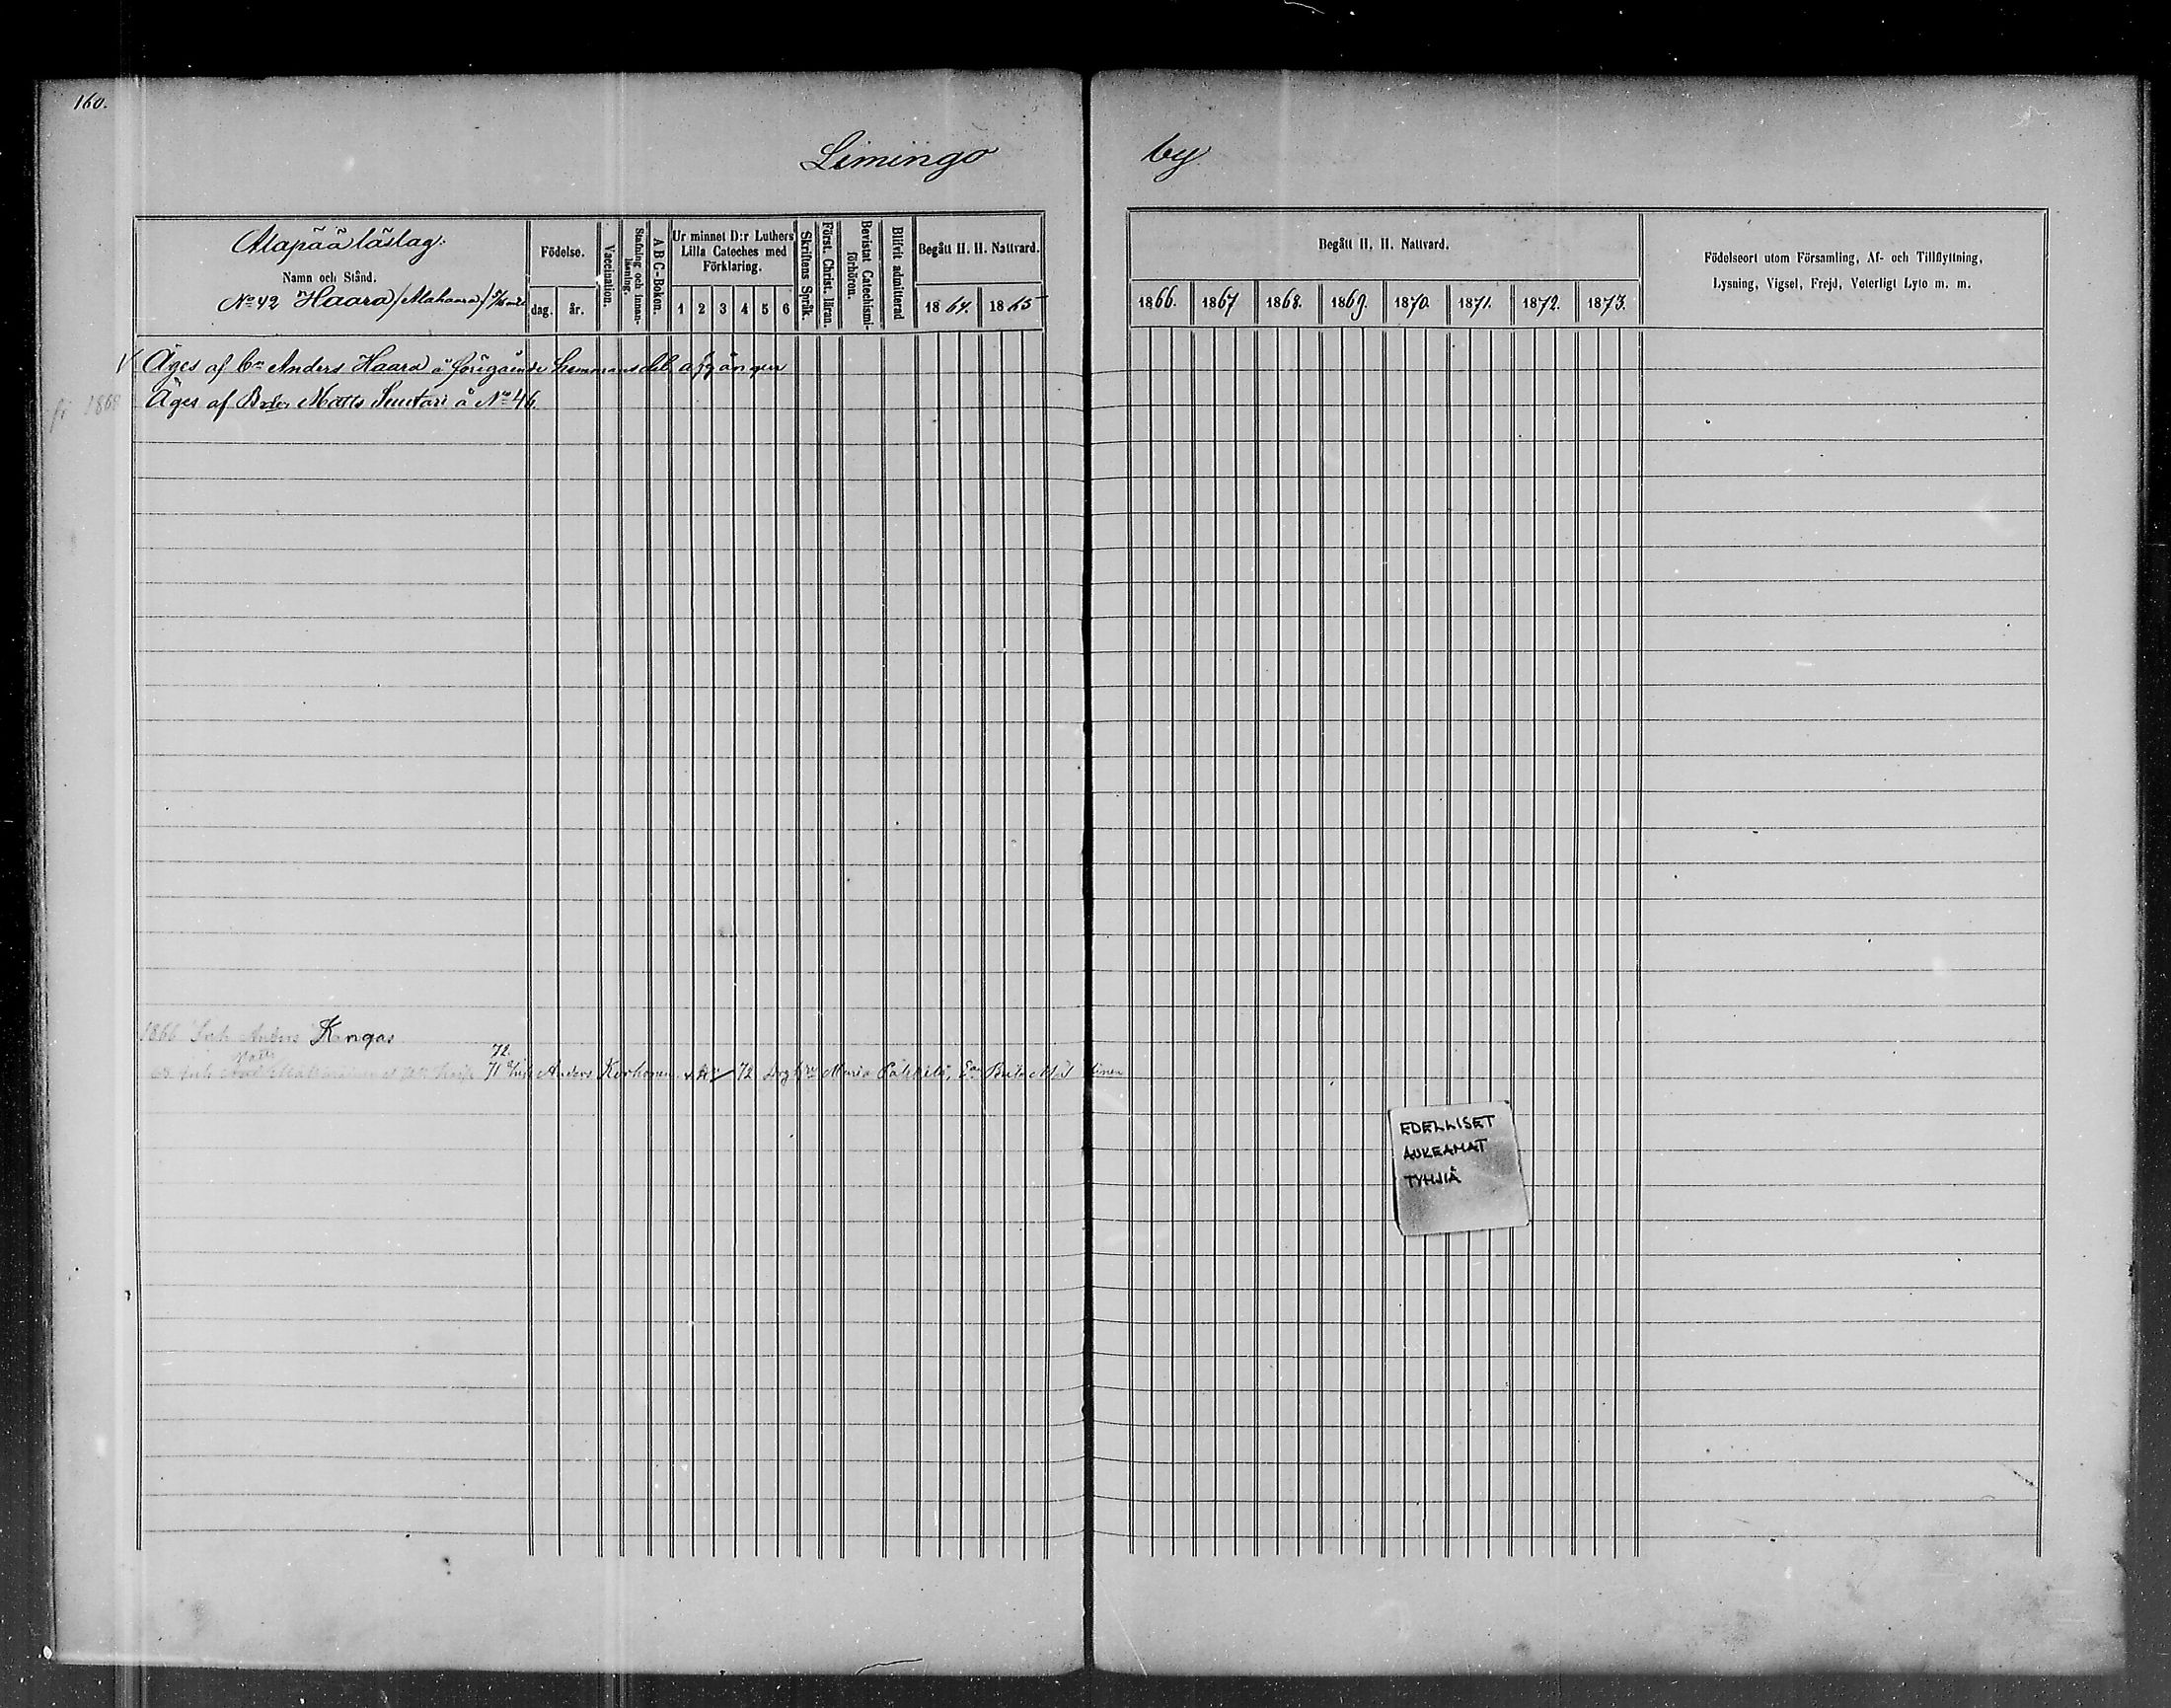 160.
Limingo by
Alapää läslag.
Namn och Stånd.
No 42 Haara /Alahaara/
Födelse.
dag. år.
Vaccination.
Stafning och innan-läsning.
A B C-Boken.
Ur minnet D:r Luthers
Lilla Cateches med
Förklaring.
1 2 3 4 5 6
Skriftens Språk.
Först. Christ. läran.
Bevistat Catechismi-förhören.
Blifvit admitterad
Begått H. H. Nattvard.
1864. 1865
Begått H. H. Nattvard.
1866. 1867 1868. 1869. 1870. 1871. 1872. 1873.
Födelseort utom Församling, Af- och Tillflyttning,
Lysning, Vigsel, Frejd, Veterligt Lyte m. m.
Äges af Bn Anders Haara å föregående hemmansdel afgången
1868 Äges af Matts å No 46.
1866 Anders Kngas
72.
71 Anders Korhonen 72 Maria
EDELLISET
AUKEAMAT
TYHJIÄ